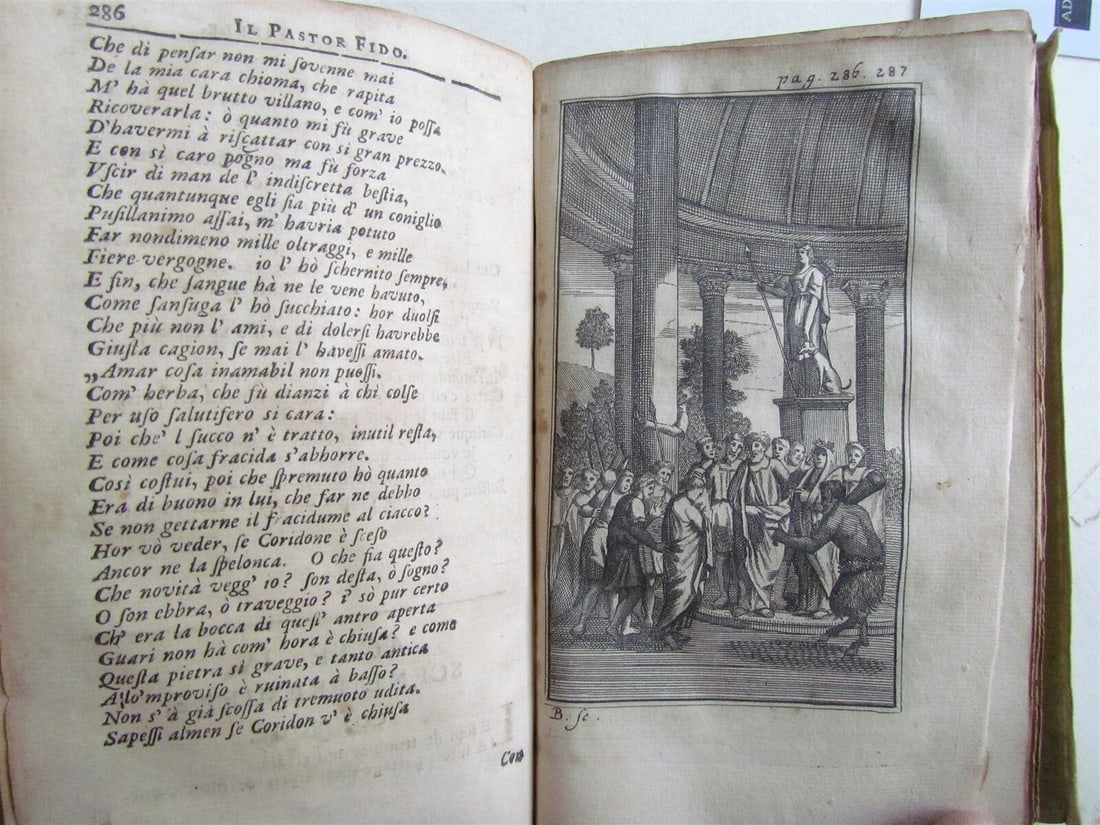 286
IL PASTOR FIDO.
Che di penſar non mi ſovenne mai
De la mia cara chioma, che rapita
M' hà quel brutto villano, e com' io poſſa
Ricoverarla: ò quanto mi fù grave
D'havermi à riſcattar con si gran prezzo.
E con sì caro pogno ma fù forza
Vſcir di man de l' indiſcretta beſtia,
Che quantunque egli ſia più d' un coniglio
Puſillanimo aſſai, m' havria potuto
Far nondimeno mille oltraggi, e mille
Fiere vergogne. io l' hò ſchernito ſempre,
E fin, che ſangue hà ne le vene havuto,
Come ſanſuga l' hò ſucchiato: hor duolſi
Che più non l' ami, e di dolerſi havrebbe
Giuſta cagion, ſe mai l' haveſſi amato.
„Amar coſa inamabil non puoſſi.
Com' herba, che fù dianzi à chi colſe
Per uſo ſalutifero sì cara:
Poi che' l ſucco n' è tratto, inutil reſta,
E come coſa fracida s'abhorre.
Così coſtui, poi che ſpremuto hò quanto
Era di buono in lui, che far ne debbo
Se non gettarne il fracidume al ciacco?
Hor vò veder, ſe Coridone è ſceſo
Ancor ne la ſpelonca. O che ſia queſto?
Che novità vegg' io? ſon deſta, ò ſogno?
O ſon ebbra, ò traveggio? i' sò pur certo
Ch' era la bocca di queſ' antro aperta
Guari non hà com' hora è chiuſa? e come
Queſta pietra sì grave, e tanto antica
A lo'mproviſo è ruinata à baſſo?
Non s' à già ſcoſſa di tremuoto udita.
Sapeſſi almen ſe Coridon v' è chiuſa
Con
pag. 286. 287
B. ſc.
AD